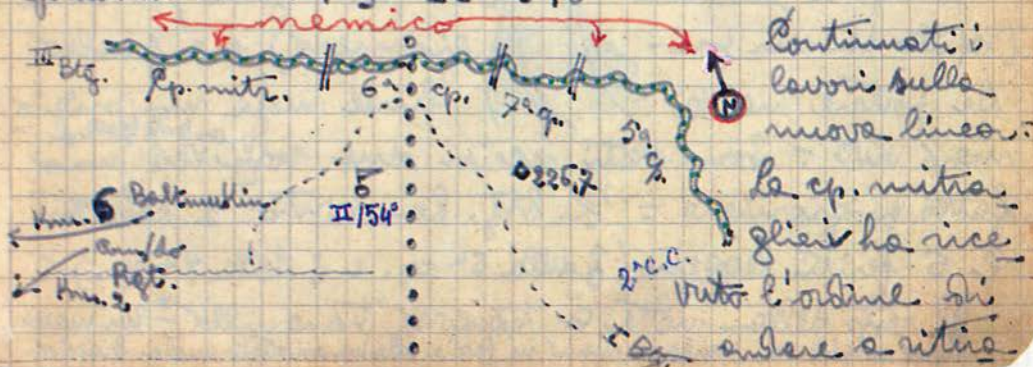 nemico
III Btg.
Cp. mitr.
6ª cp.
7ª cp.
5ª cp.
N
226,7
II/54°
Km. 6
Rgt.
Km. 2
2ª C.C.
I
Continuati i
lavori sulla
nuova linea.
La cp. mitra
glieri ha rice
vuto l'ordine di
andare a ritira